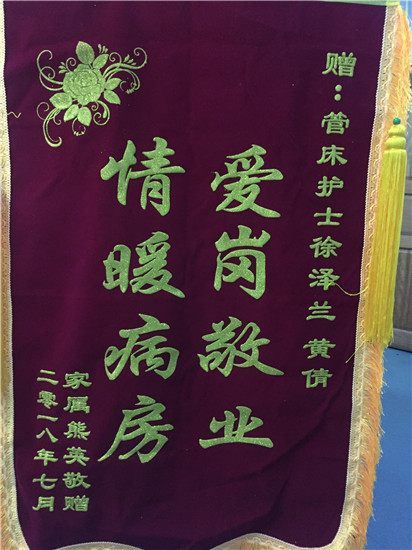 赠：管床护士徐泽兰 黄倩
爱岗敬业
情暖病房
家属熊英敬赠
二零一八年七月